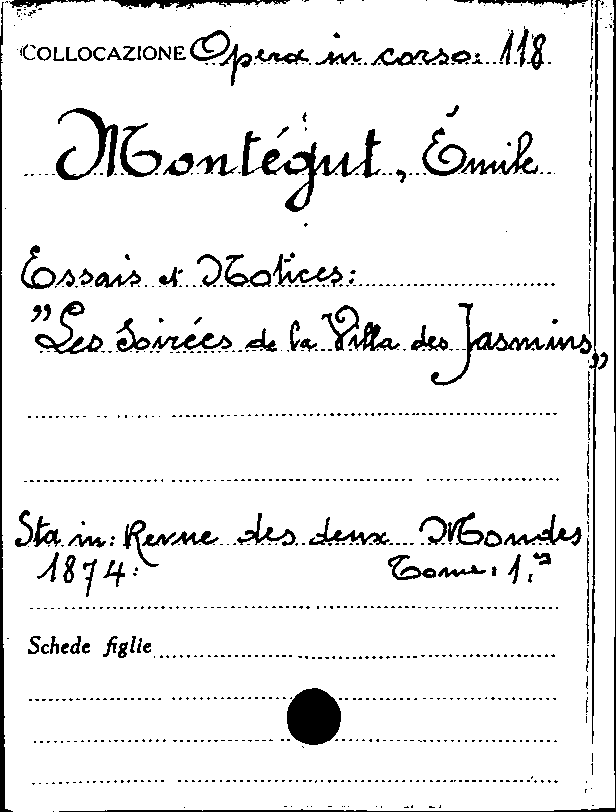 COLLOCAZIONE Opera in corso: 118
Montégut, Émile
Essais et Notices:
"Les Soirées de la Villa des Jasmins„
Sta in: Revue des deux Mondes
1874: Tome: 1.º
Schede figlie